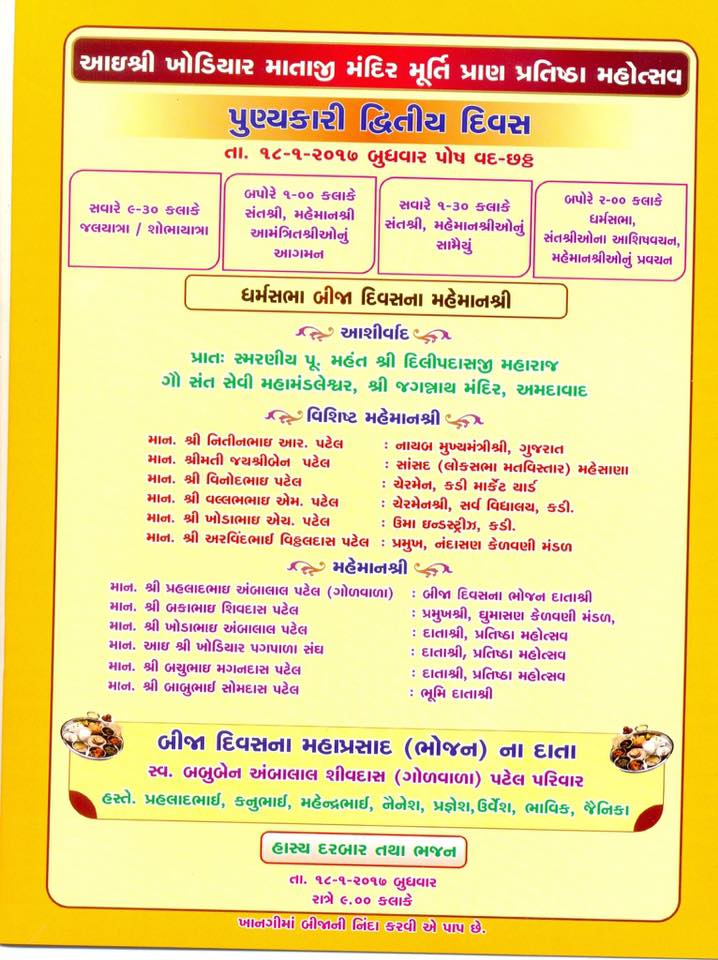 આઇશ્રી ખોડિયાર માતાજી મંદિર મૂર્તિ પ્રાણ પ્રતિષ્ઠા મહોત્સવ
પુણ્યકારી દ્વિતીય દિવસ
તા. ૧૮-૧-૨૦૧૭ બુધવાર પોષ વદ-છઠ્ઠ
સવારે ૯-૩૦ કલાકે
જલયાત્રા / શોભાયાત્રા
બપોરે ૧-૦૦ કલાકે
સંતશ્રી, મહેમાનશ્રી
આમંત્રિતશ્રીઓનું
આગમન
સવારે ૧-૩૦ કલાકે
સંતશ્રી, મહેમાનશ્રીઓનું
સામૈયું
બપોરે ૨-૦૦ કલાકે
ધર્મસભા,
સંતશ્રીઓના આશિષવચન,
મહેમાનશ્રીઓનું પ્રવચન
ધર્મસભા બીજા દિવસના મહેમાનશ્રી
આશીર્વાદ
પ્રાતઃ સ્મરણીય પૂ. મહંત શ્રી દિલીપદાસજી મહારાજ
ગૌ સંત સેવી મહામંડલેશ્વર, શ્રી જગન્નાથ મંદિર, અમદાવાદ
વિશિષ્ટ મહેમાનશ્રી
માન. શ્રી નિતીનભાઇ આર. પટેલ : નાયબ મુખ્યમંત્રીશ્રી, ગુજરાત
માન. શ્રીમતી જયશ્રીબેન પટેલ : સાંસદ (લોકસભા મતવિસ્તાર) મહેસાણા
માન. શ્રી વિનોદભાઇ પટેલ : ચેરમેન, કડી માર્કેટ યાર્ડ
માન. શ્રી વલ્લભભાઇ એમ. પટેલ : ચેરમેનશ્રી, સર્વ વિદ્યાલય, કડી.
માન. શ્રી ખોડાભાઇ એચ. પટેલ : ઉમા ઇન્ડસ્ટ્રીઝ, કડી.
માન. શ્રી અરવિંદભાઈ વિઠ્ઠલદાસ પટેલ : પ્રમુખ, નંદાસણ કેળવણી મંડળ
મહેમાનશ્રી
માન. શ્રી પ્રહલાદભાઇ અંબાલાલ પટેલ (ગોળવાળા) : બીજા દિવસના ભોજન દાતાશ્રી
માન. શ્રી બકાભાઇ શિવદાસ પટેલ : પ્રમુખશ્રી, ઘુમાસણ કેળવણી મંડળ,
માન. શ્રી ખોડાભાઇ અંબાલાલ પટેલ : દાતાશ્રી, પ્રતિષ્ઠા મહોત્સવ
માન. આઇ શ્રી ખોડિયાર પગપાળા સંઘ : દાતાશ્રી, પ્રતિષ્ઠા મહોત્સવ
માન. શ્રી બચુભાઇ મગનદાસ પટેલ : દાતાશ્રી, પ્રતિષ્ઠા મહોત્સવ
માન. શ્રી બાબુભાઈ સોમદાસ પટેલ : ભૂમિ દાતાશ્રી
બીજા દિવસના મહાપ્રસાદ (ભોજન) ના દાતા
સ્વ. બબુબેન અંબાલાલ શીવદાસ (ગોળવાળા) પટેલ પરિવાર
હસ્તે. પ્રહલાદભાઈ, કનુભાઈ, મહેન્દ્રભાઈ, નૈનેશ, પ્રજ્ઞેશ,ઉર્વેશ, ભાવિક, જૈનિકા
હાસ્ય દરબાર તથા ભજન
તા. ૧૮-૧-૨૦૧૭ બુધવાર
રાત્રે ૯.૦૦ કલાકે
ખાનગીમાં બીજાની નિંદા કરવી એ પાપ છે.